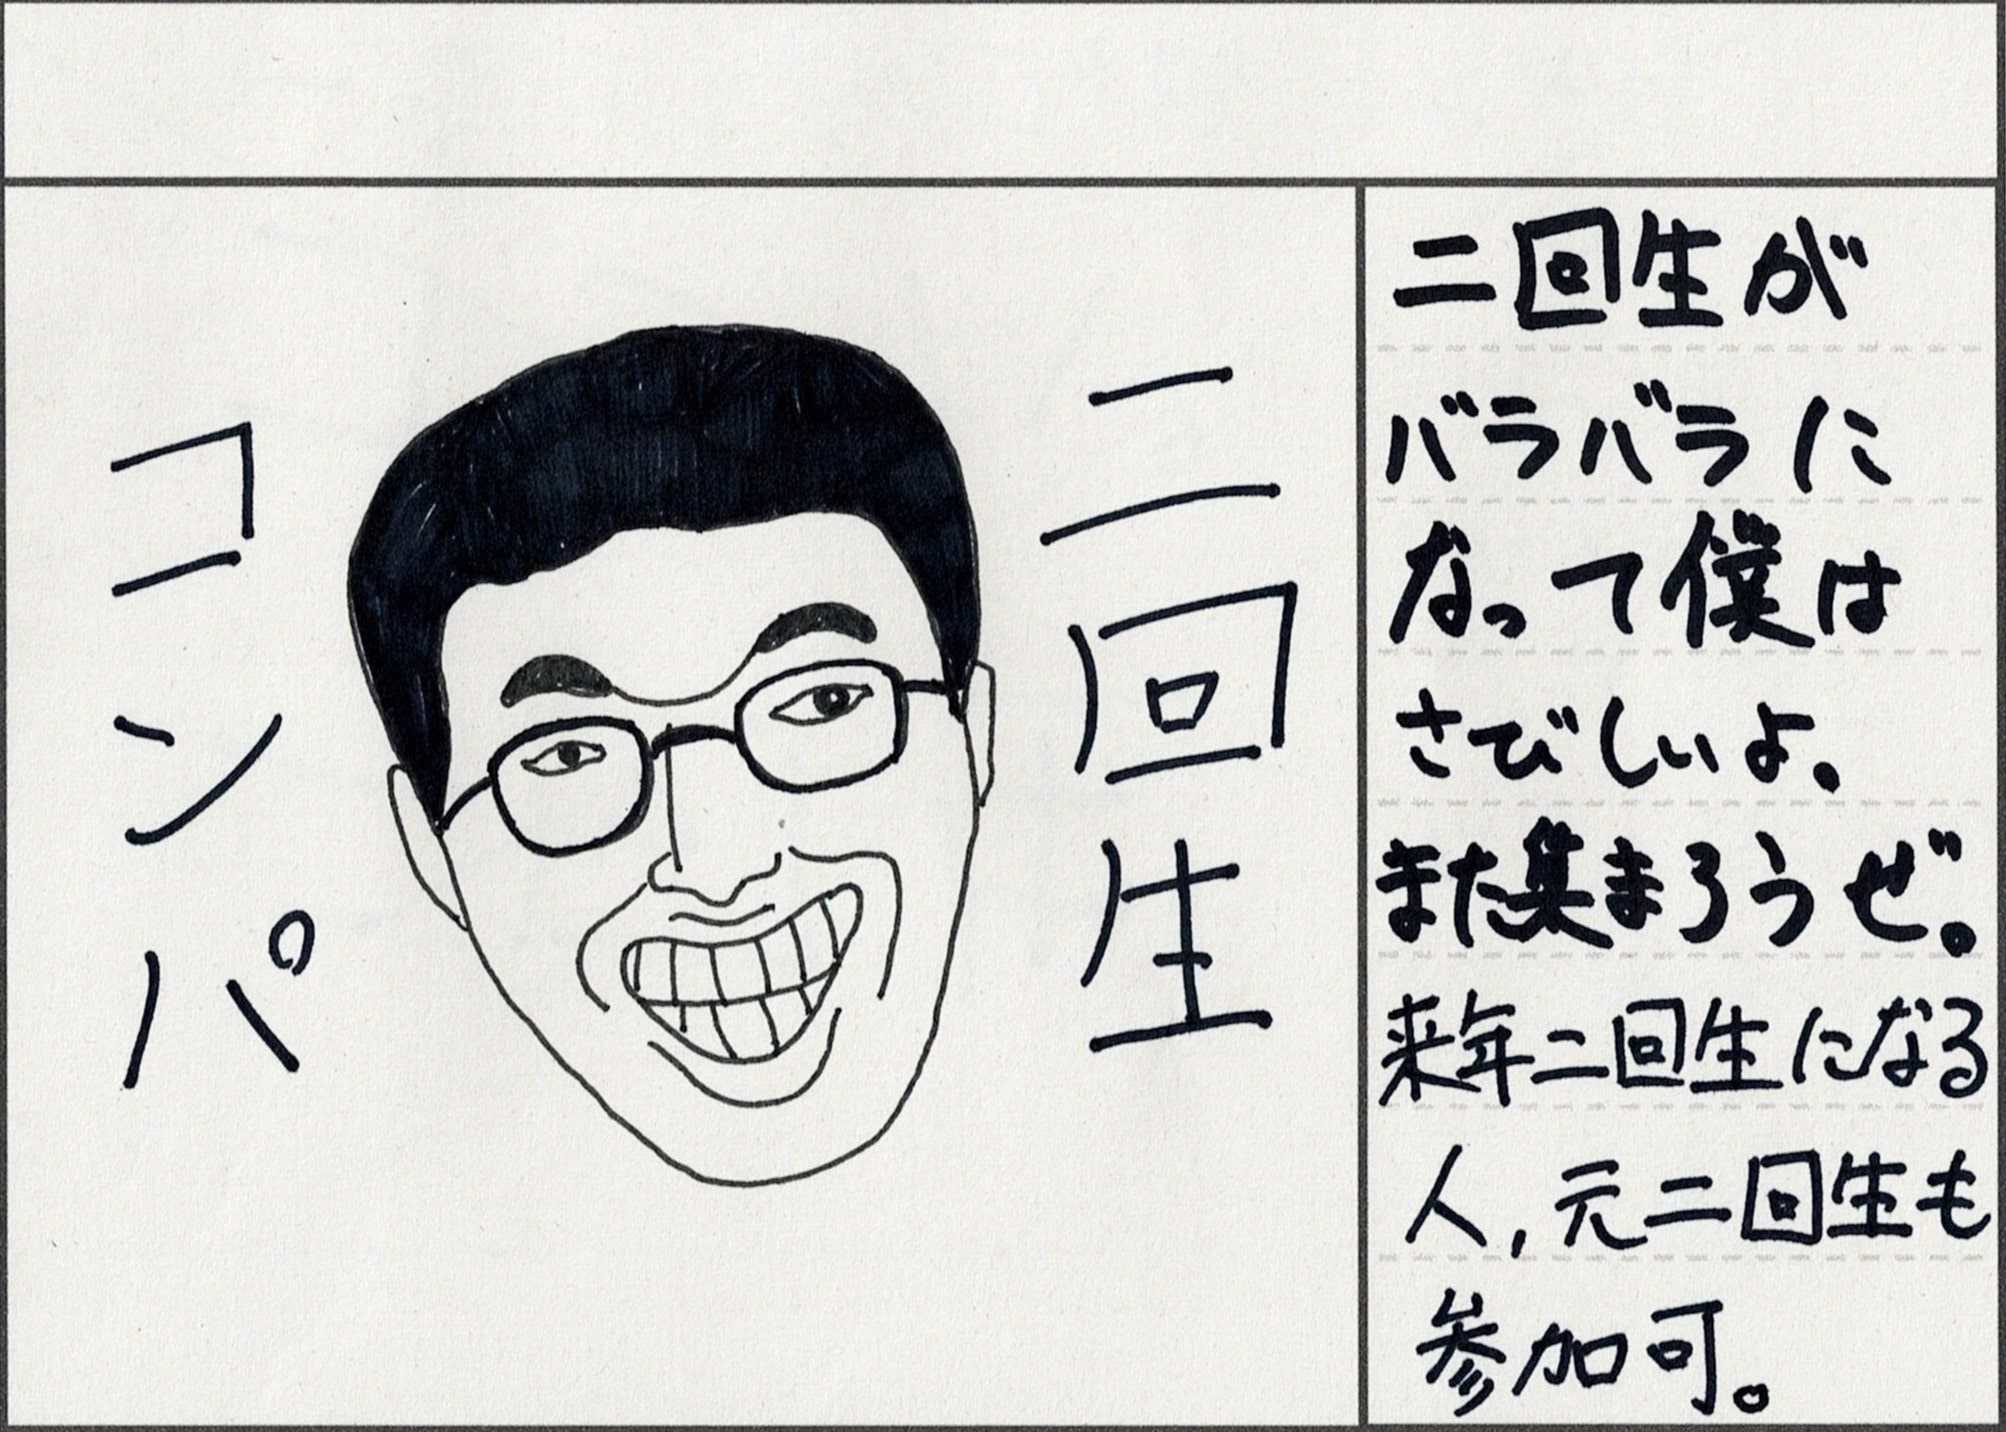 二回生
コンパ
二回生が
バラバラに
なって僕は
さびしいよ。
また集まろうぜ。
来年二回生になる
人,元二回生も
参加可。